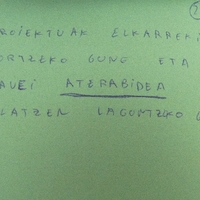 2
ROIEKTUAK ELKARREKI
ORTZEKO GUNE ETA
AUEI ATZRABIDEA
LATZEN LAGUNTZEKO G